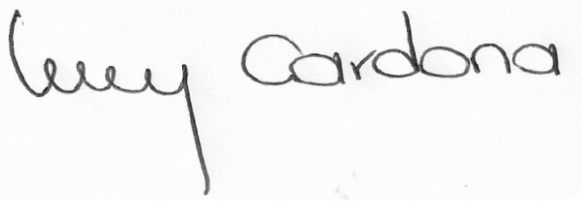 Lucy Cardona